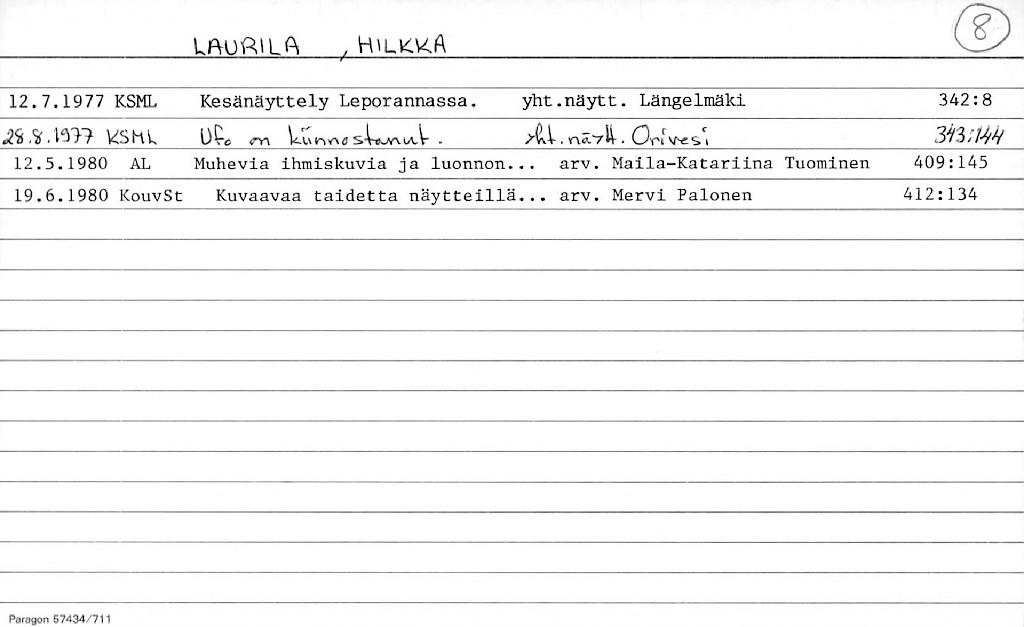 LAURILA , HILKKA 8
12.7.1977 KSML Kesänäyttely Leporannassa. yht.näytt. Längelmäki 342:8
28.8.1977 KSML Ufo on kiinnostanut. yht.näytt. Orivesi 343:144
12.5.1980 AL Muhevia ihmiskuvia ja luonnon... arv. Maila-Katariina Tuominen 409:145
19.6.1980 KouvSt Kuvaavaa taidetta näytteillä... arv. Mervi Palonen 412:134
Paragon 57434/711